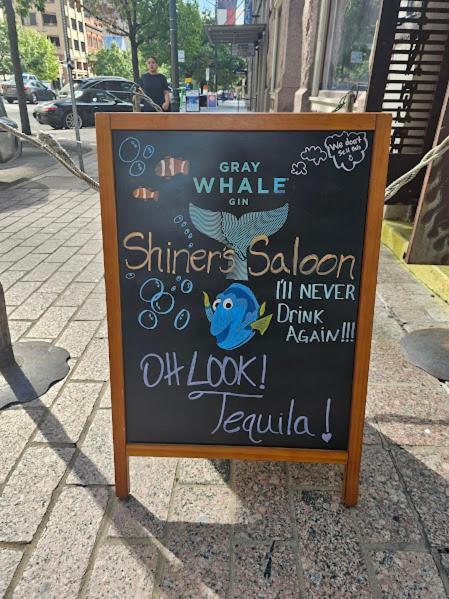 GRAY
WHALE
GIN
We don't
Sell this
Shiner's Saloon
I'll NEVER
Drink
AGAIN!!!
OH LOOK!
Tequila!